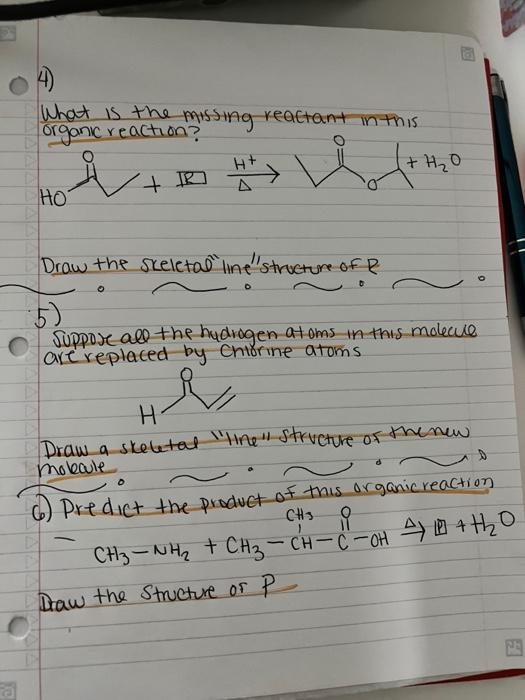 4)
What is the missing reactant in this
organic reaction?
O HO + R H+ Δ → O O + H2O
Draw the skeletal "line" structure of R
5)
Suppose all the hydrogen atoms in this molecule
are replaced by Chlorine atoms
O
H
Draw a skeletal "line" structure of the new
molecule
6) Predict the product of this organic reaction
CH3 O
CH3-NH2 + CH3-CH-C-OH Δ→ P + H2O
Draw the structure of P